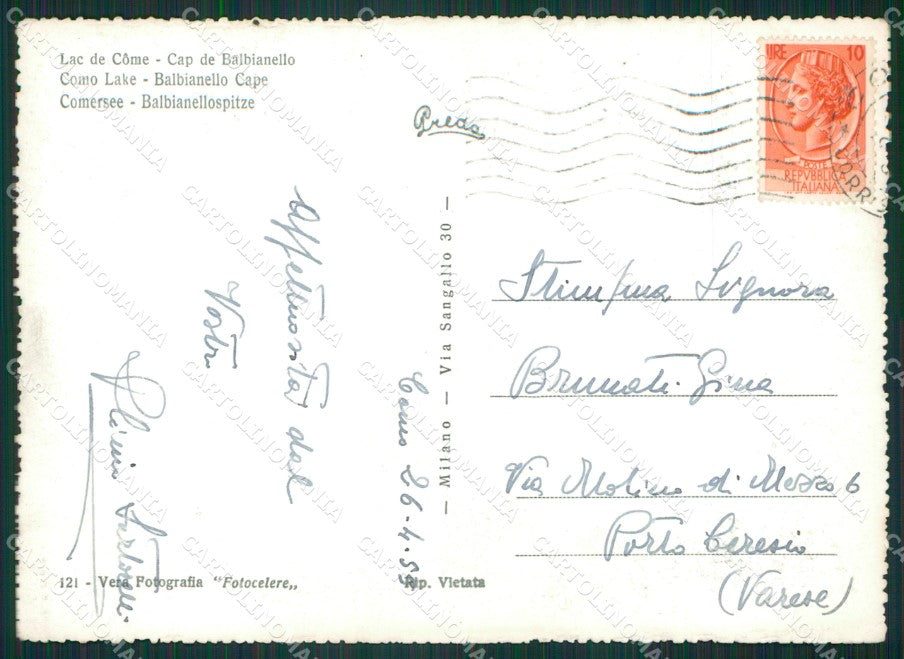 Lac de Côme - Cap de Balbianello
Como Lake - Balbianello Cape
Comersee - Balbianellospitze
LIRE 10
POSTE
REPVBBLICA
ITALIANA
Affettuosità dal
Vostr
Como 26-4-55
— Milano — Via Sangallo 30 —
Stim/ma Signora
Brunati Gina
Via Molino di Mezzo 6
Porto Ceresio
(Varese)
121 - Vera Fotografia "Fotocelere„
Rip. Vietata
CARTOLINOMANIA